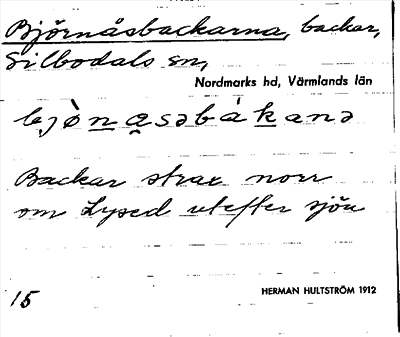 Björnåsbackarna, backar,
Silbodals sn,
Nordmarks hd, Värmlands län
bjò̱ṉa̱səbákanə
Backar strax norr
om Lysed utefter sjön
15 HERMAN HULTSTRÖM 1912